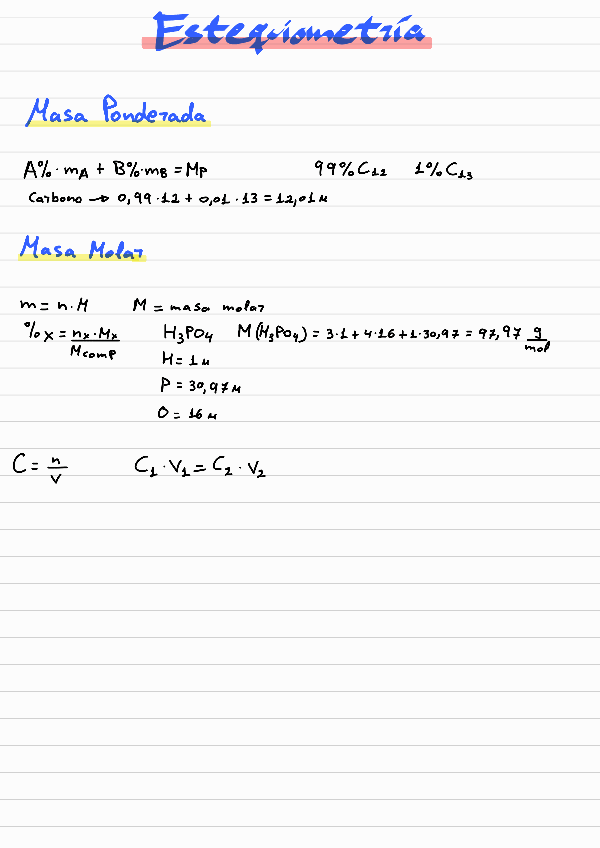 Estequiometría
Masa Ponderada
A%·mA + B%·mB = MP 99% C12 1% C13
Carbono → 0,99·12 + 0,01·13 = 12,01u
Masa Molar
m = n·M M = masa molar
%x = nx·Mx / Mcomp H3PO4 M(H3PO4) = 3·1 + 4·16 + 1·30,97 = 97,97 g/mol
H = 1u
P = 30,97u
O = 16u
C = n/V C1·V1 = C2·V2